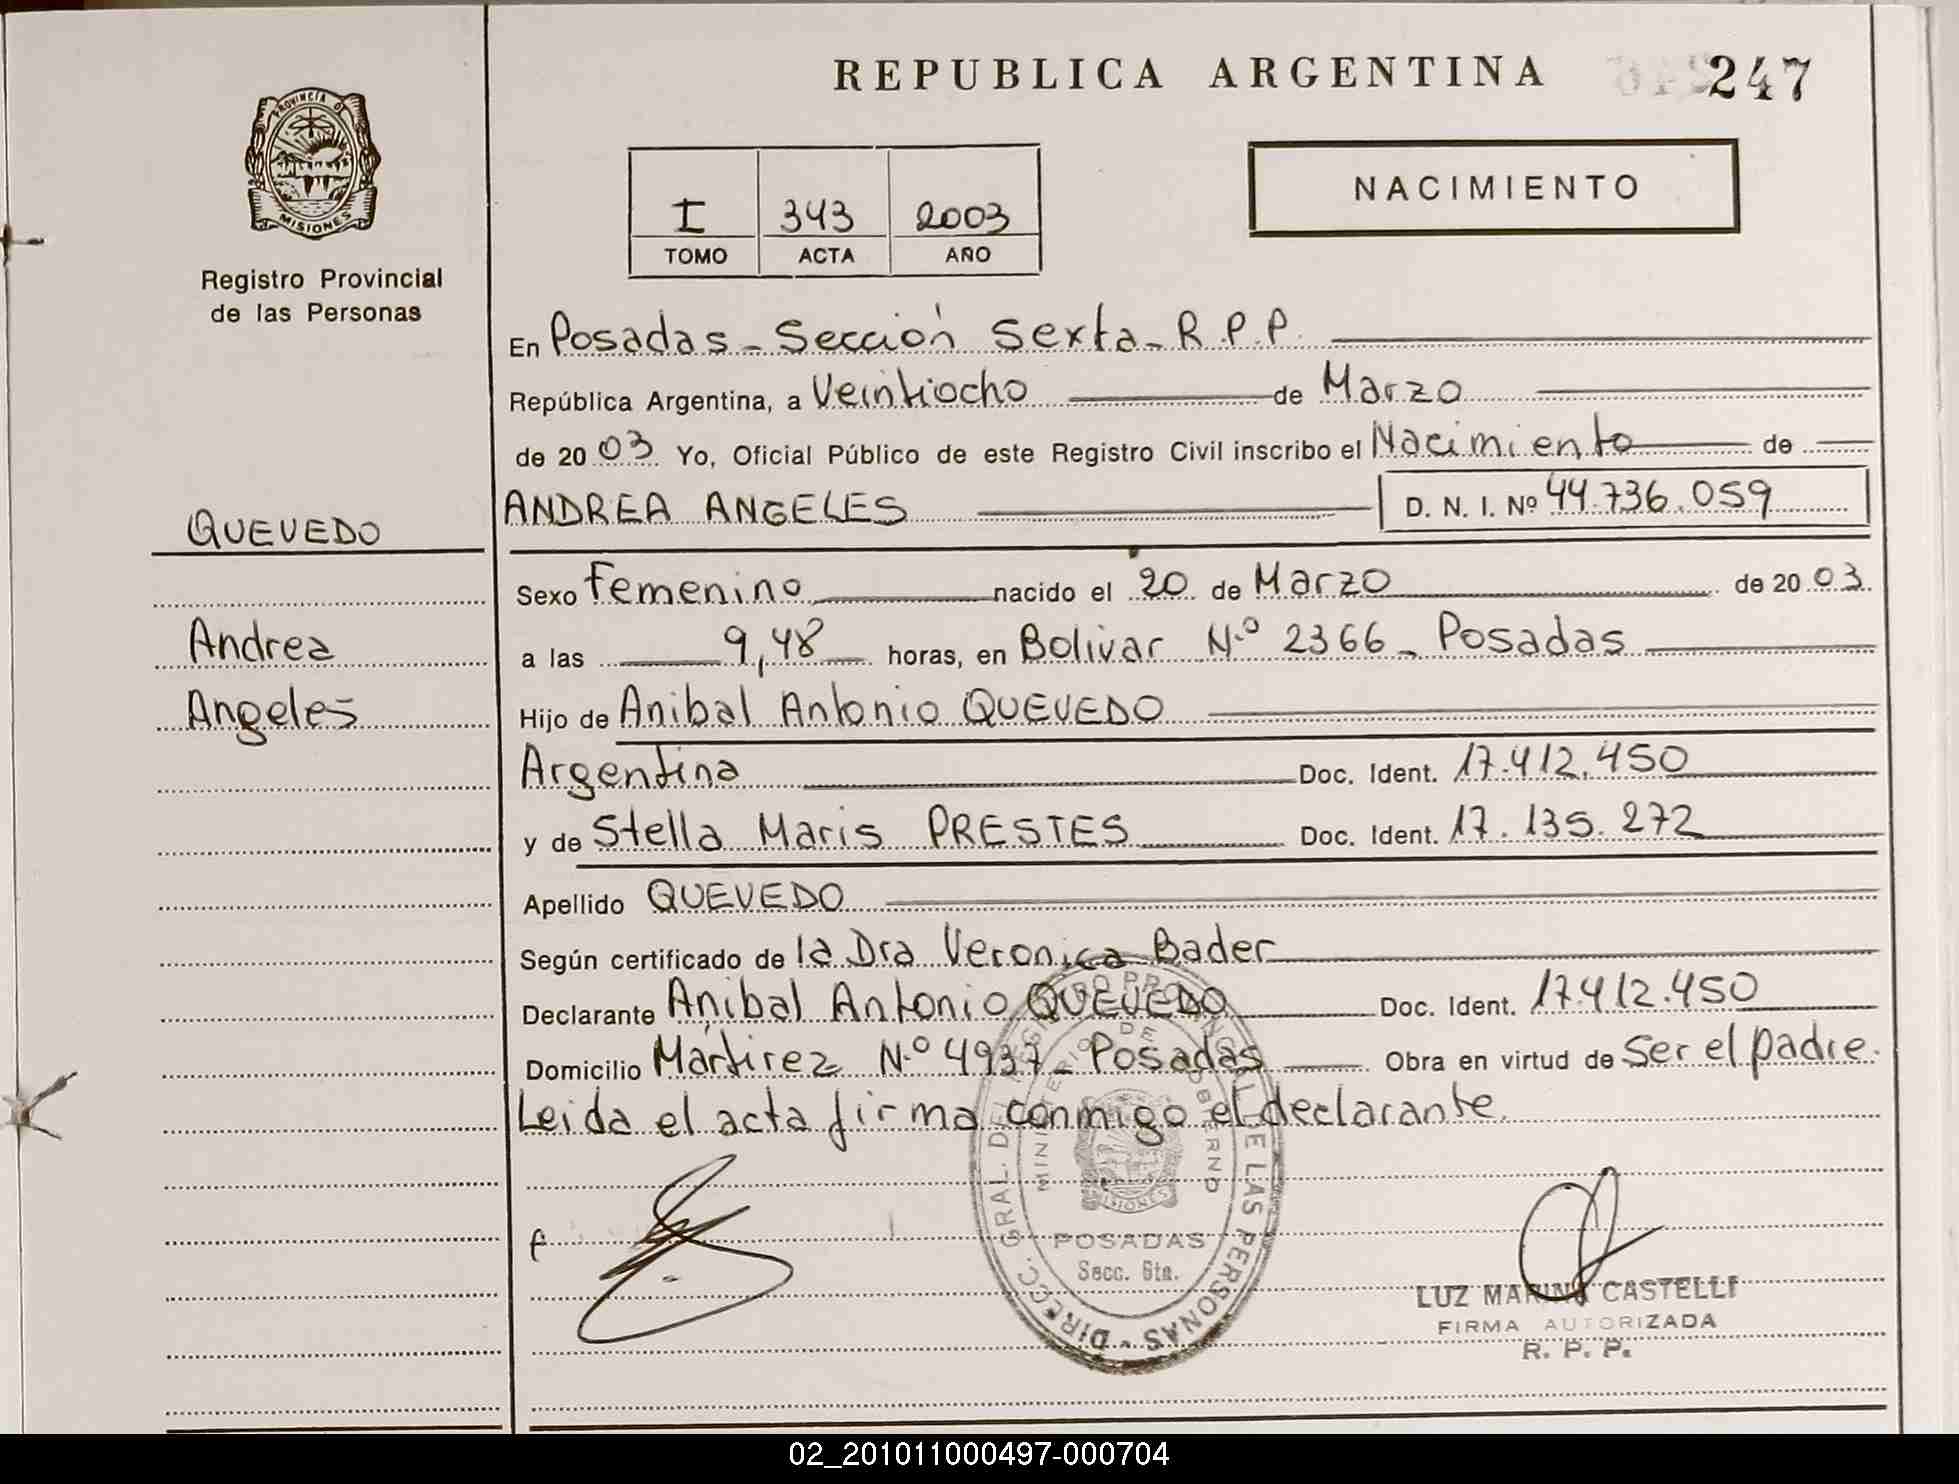 REPUBLICA ARGENTINA
247
PROVINCIA D
MISIONES
Registro Provincial
de las Personas
I 343 2003
TOMO ACTA AÑO
NACIMIENTO
En Posadas - Sección Sexta - R.P.P.
República Argentina, a Veintiocho de Marzo
de 20 03 Yo, Oficial Público de este Registro Civil inscribo el Nacimiento de
QUEVEDO
ANDREA ANGELES D. N. I. Nº 44.736.059
Sexo Femenino nacido el 20 de Marzo de 20 03.
Andrea
a las 9,48 horas, en Bolivar N.º 2366 - Posadas
Angeles
Hijo de Anibal Antonio QUEVEDO
Argentina Doc. Ident. 17.412.450
y de Stella Maris PRESTES Doc. Ident. 17.135.272
Apellido QUEVEDO
Según certificado de la Dra Veronica Bader
Declarante Anibal Antonio QUEVEDO Doc. Ident. 17.412.450
Domicilio Mártirez N.º 4937 - Posadas Obra en virtud de Ser el padre.
Leida el acta firma conmigo el declarante.
DIRECC. GRAL. DEL REGISTRO PROVINCIAL DE LAS PERSONAS -
MINISTERIO DE GOBIERNO
MISIONES
POSADAS
Secc. 6ta.
LUZ MARINA CASTELLI
FIRMA AUTORIZADA
R. P. P.
02_201011000497-000704